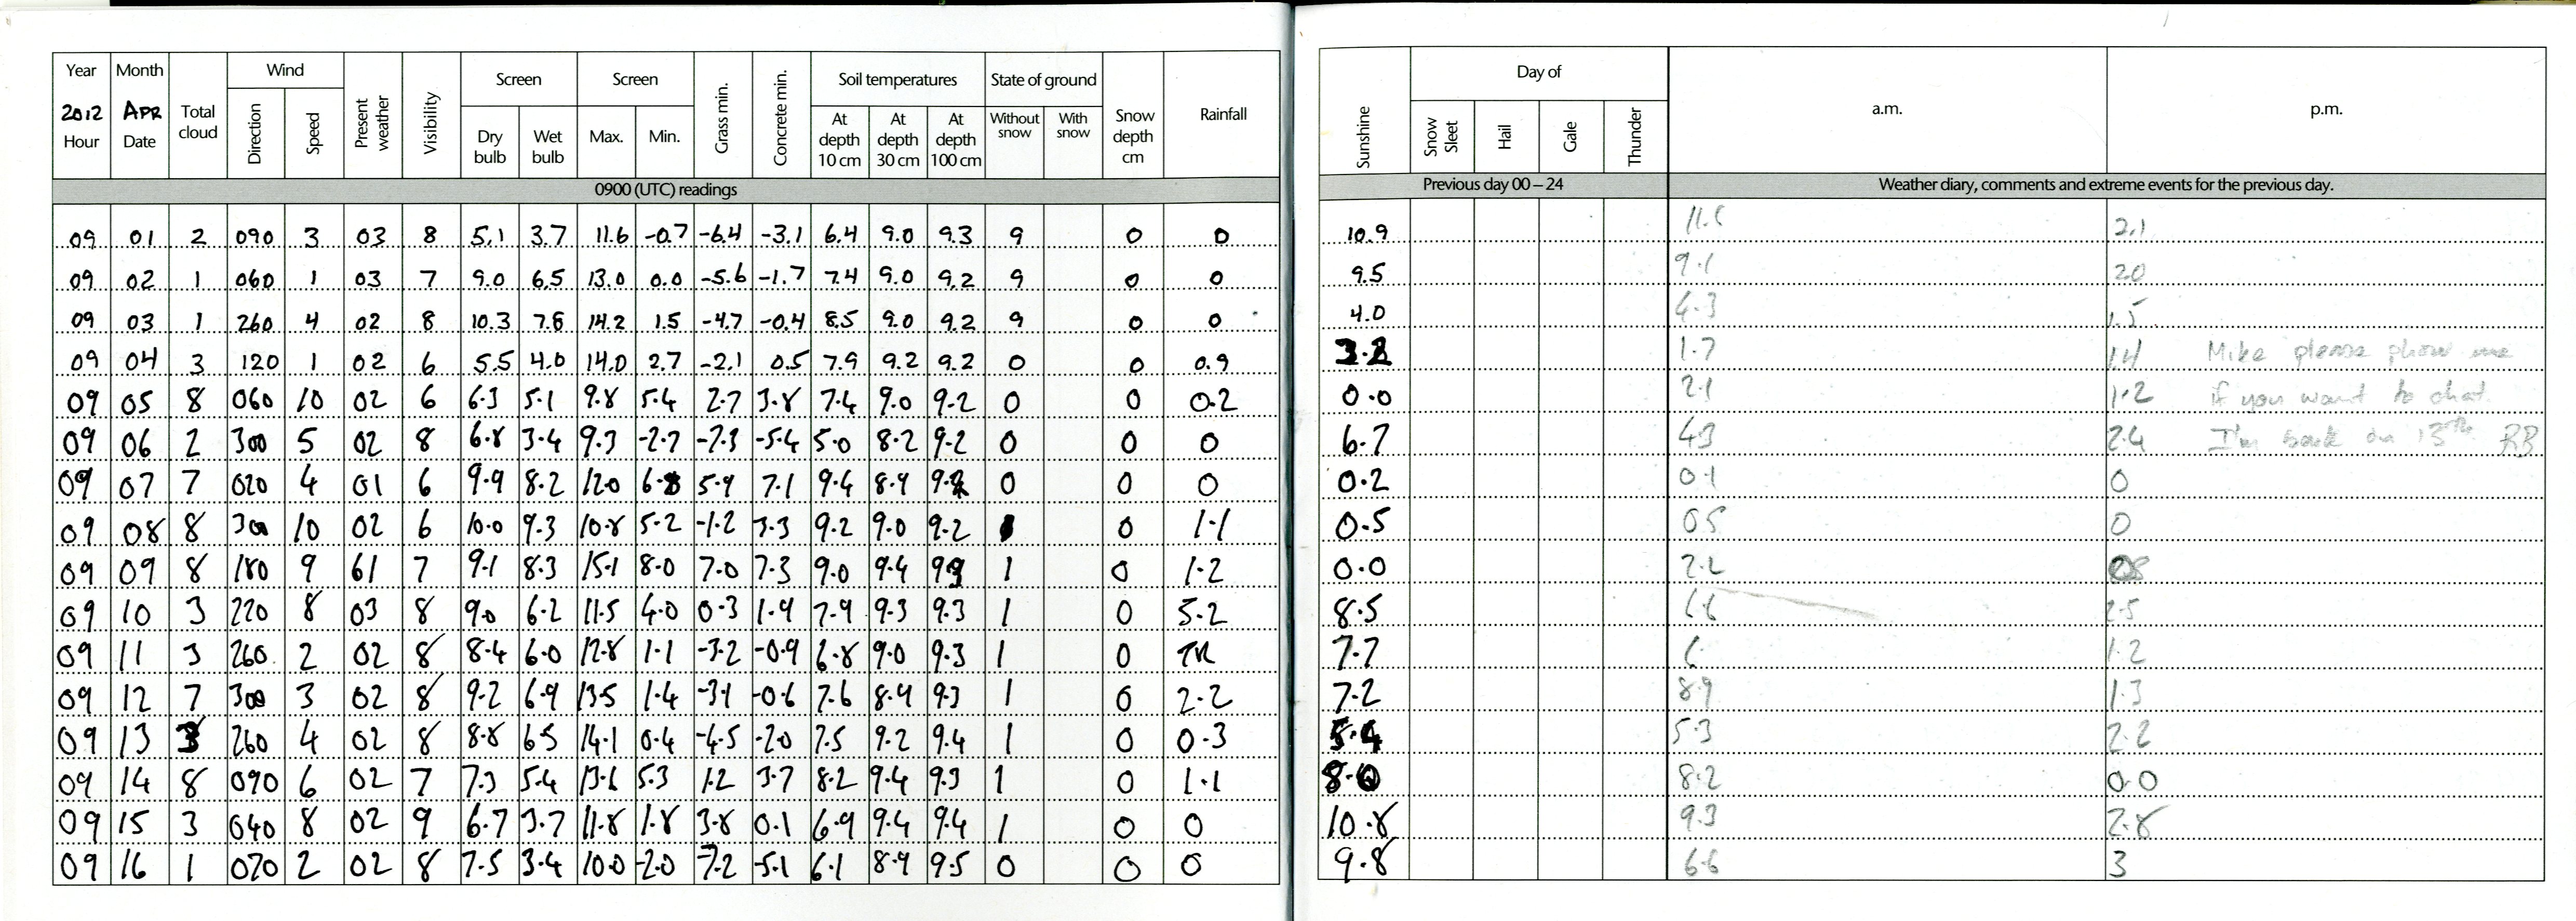 Year Month Total cloud Wind Present weather Visibility Screen Screen Grass min. Concrete min. Soil temperatures State of ground Snow depth cm Rainfall Sunshine Day of a.m. p.m.
2012 APR Direction Speed Dry bulb Wet bulb Max. Min. At depth 10 cm At depth 30 cm At depth 100 cm Without snow With snow Snow Sleet Hail Gale Thunder
Hour Date
0900 (UTC) readings Previous day 00 – 24 Weather diary, comments and extreme events for the previous day.
09 01 2 090 3 03 8 5.1 3.7 11.6 -0.7 -6.4 -3.1 6.4 9.0 9.3 9 0 0 10.9 2.1
09 02 1 060 1 03 7 9.0 6.5 13.0 0.0 -5.6 -1.7 7.4 9.0 9.2 9 0 0 9.5 9.1 20
09 03 1 260 4 02 8 10.3 7.8 14.2 1.5 -4.7 -0.4 8.5 9.0 9.2 9 0 0 4.0 4.3 1.5
09 04 3 120 1 02 6 5.5 4.0 14.0 2.7 -2.1 0.5 7.9 9.2 9.2 0 0 0.9 1.7 1.4 Mike please phone me
09 05 8 060 10 02 6 6.3 5.1 9.8 5.4 2.7 3.8 7.4 9.0 9.2 0 0 0.2 0.0 2.1 1.2 if you want to chat.
09 06 2 300 5 02 8 6.8 3.4 9.3 -2.7 -7.3 -5.4 5.0 8.2 9.2 0 0 0 6.7 4.3 2.4 I'm back on 13th RB
09 07 7 020 4 01 6 9.9 8.2 12.0 6.8 5.9 7.1 9.4 8.9 9.2 0 0 0 0.2 0.1 0
09 08 8 300 10 02 6 10.0 9.3 10.8 5.2 -1.2 3.3 9.2 9.0 9.2 0 1.1 0.5 0.5 0
09 09 8 180 9 61 7 9.1 8.3 15.1 8.0 7.0 7.3 9.0 9.4 9.3 1 0 1.2 0.0 2.2
09 10 3 220 8 03 8 9.0 6.2 11.5 4.0 0.3 1.9 7.9 9.3 9.3 1 0 5.2 8.5 6.6 2.5
09 11 3 260 2 02 8 8.4 6.0 12.8 1.1 -3.2 -0.9 6.8 9.0 9.3 1 0 TR 7.7 1.2
09 12 7 300 3 02 8 9.2 6.9 13.5 1.4 -3.1 -0.6 7.6 8.9 9.3 1 0 2.2 7.2 8.9 1.3
09 13 3 260 4 02 8 8.8 6.5 14.1 0.4 -4.5 -2.0 7.5 9.2 9.4 1 0 0.3 5.4 5.3 2.2
09 14 8 090 6 02 7 7.3 5.4 13.6 5.3 1.2 3.7 8.2 9.4 9.3 1 0 1.1 8.0 8.2 0.0
09 15 3 040 8 02 9 6.7 3.7 11.8 1.8 3.8 0.1 6.9 9.4 9.4 1 0 0 10.8 9.3 2.8
09 16 1 070 2 02 8 7.5 3.4 10.0 -2.0 -7.2 -5.1 6.1 8.9 9.5 0 0 0 9.8 6.6 3